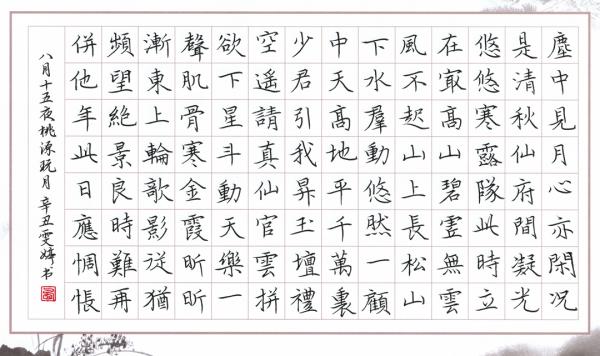 塵中見月心亦閑況
是清秋仙府間凝光
悠悠寒露隊此時立
在㝡高山碧虛無雲
風不起山上長松山
下水羣動悠然一顧
中天高地平千萬裏
少君引我昇玉壇禮
空遙請真仙官雲拼
欲下星斗動天樂一
聲肌骨寒金霞昕昕
漸東上輪歌影從猶
頻望絕景良時難再
併他年此日應惆悵
八月十五夜桃源玩月 辛丑雯婷书